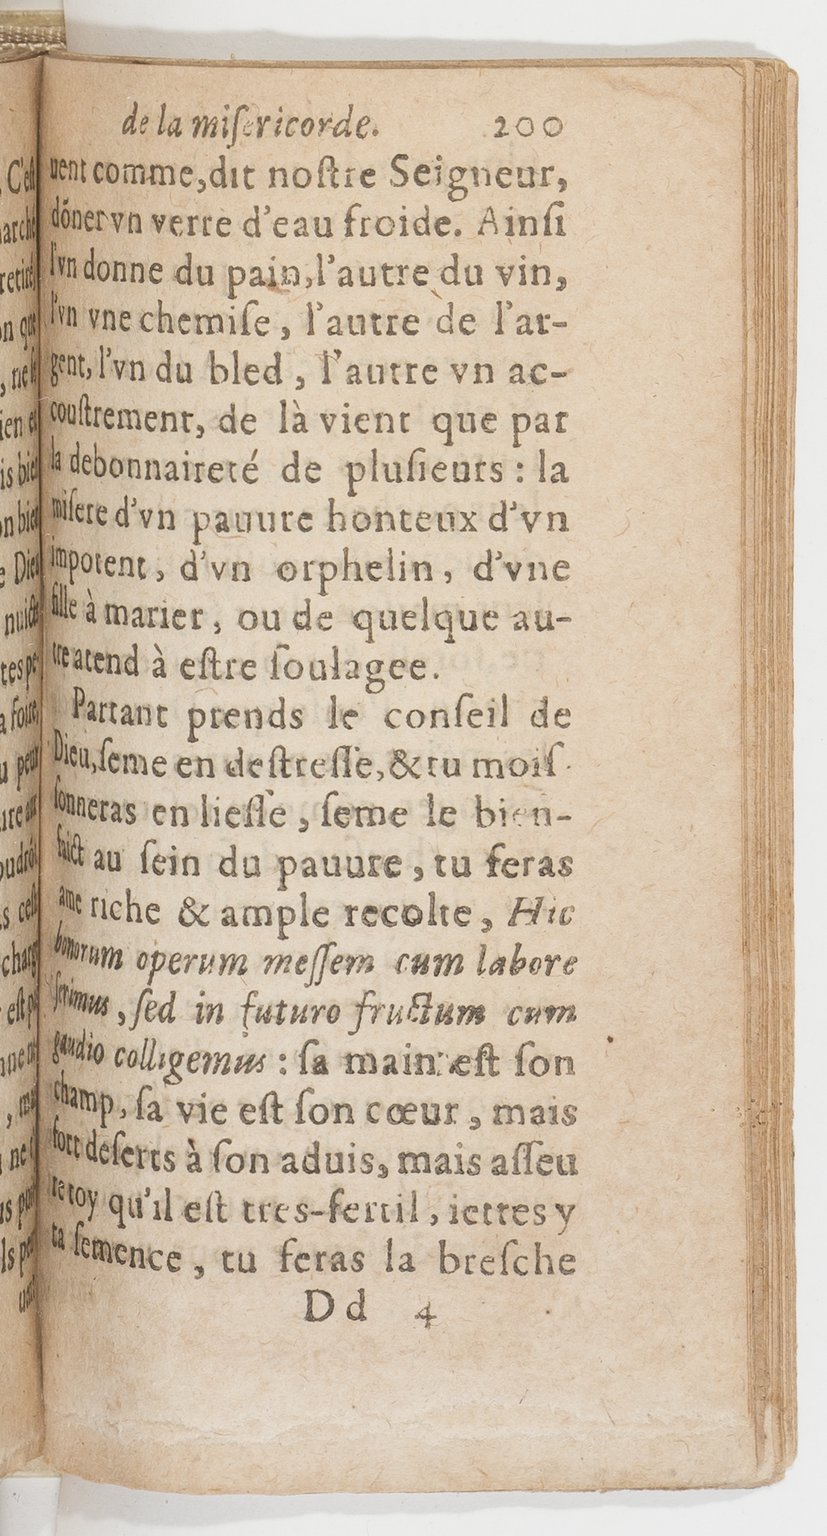 de la miſericorde. 200
uent comme, dit noſtre Seigneur,
dõner vn verre d'eau froide. Ainſi
l'vn donne du pain, l'autre du vin,
l'vn vne chemiſe, l'autre de l'ar-
gent, l'vn du bled, l'autre vn ac-
couſtrement, de là vient que par
la debonnaireté de pluſieurs : la
miſere d'vn pauure honteux d'vn
impotent, d'vn orphelin, d'vne
fille à marier, ou de quelque au-
tre atend à eſtre ſoulagee.
Partant prends le conſeil de
Dieu, ſeme en deſtreſſe, & tu moiſ-
ſonneras en lieſſe, ſeme le bien-
faict au ſein du pauure, tu feras
ame riche & ample recolte, Hic
bonorum operum meſſem cum labore
ſerimus, ſed in futuro fructum cum
gaudio colligemus : ſa main eſt ſon
champ, ſa vie eſt ſon cœur, mais
fort deſerts à ſon aduis, mais aſſeu
re toy qu'il eſt tres-fertil, iettes y
ta ſemence, tu feras la breſche
Dd 4